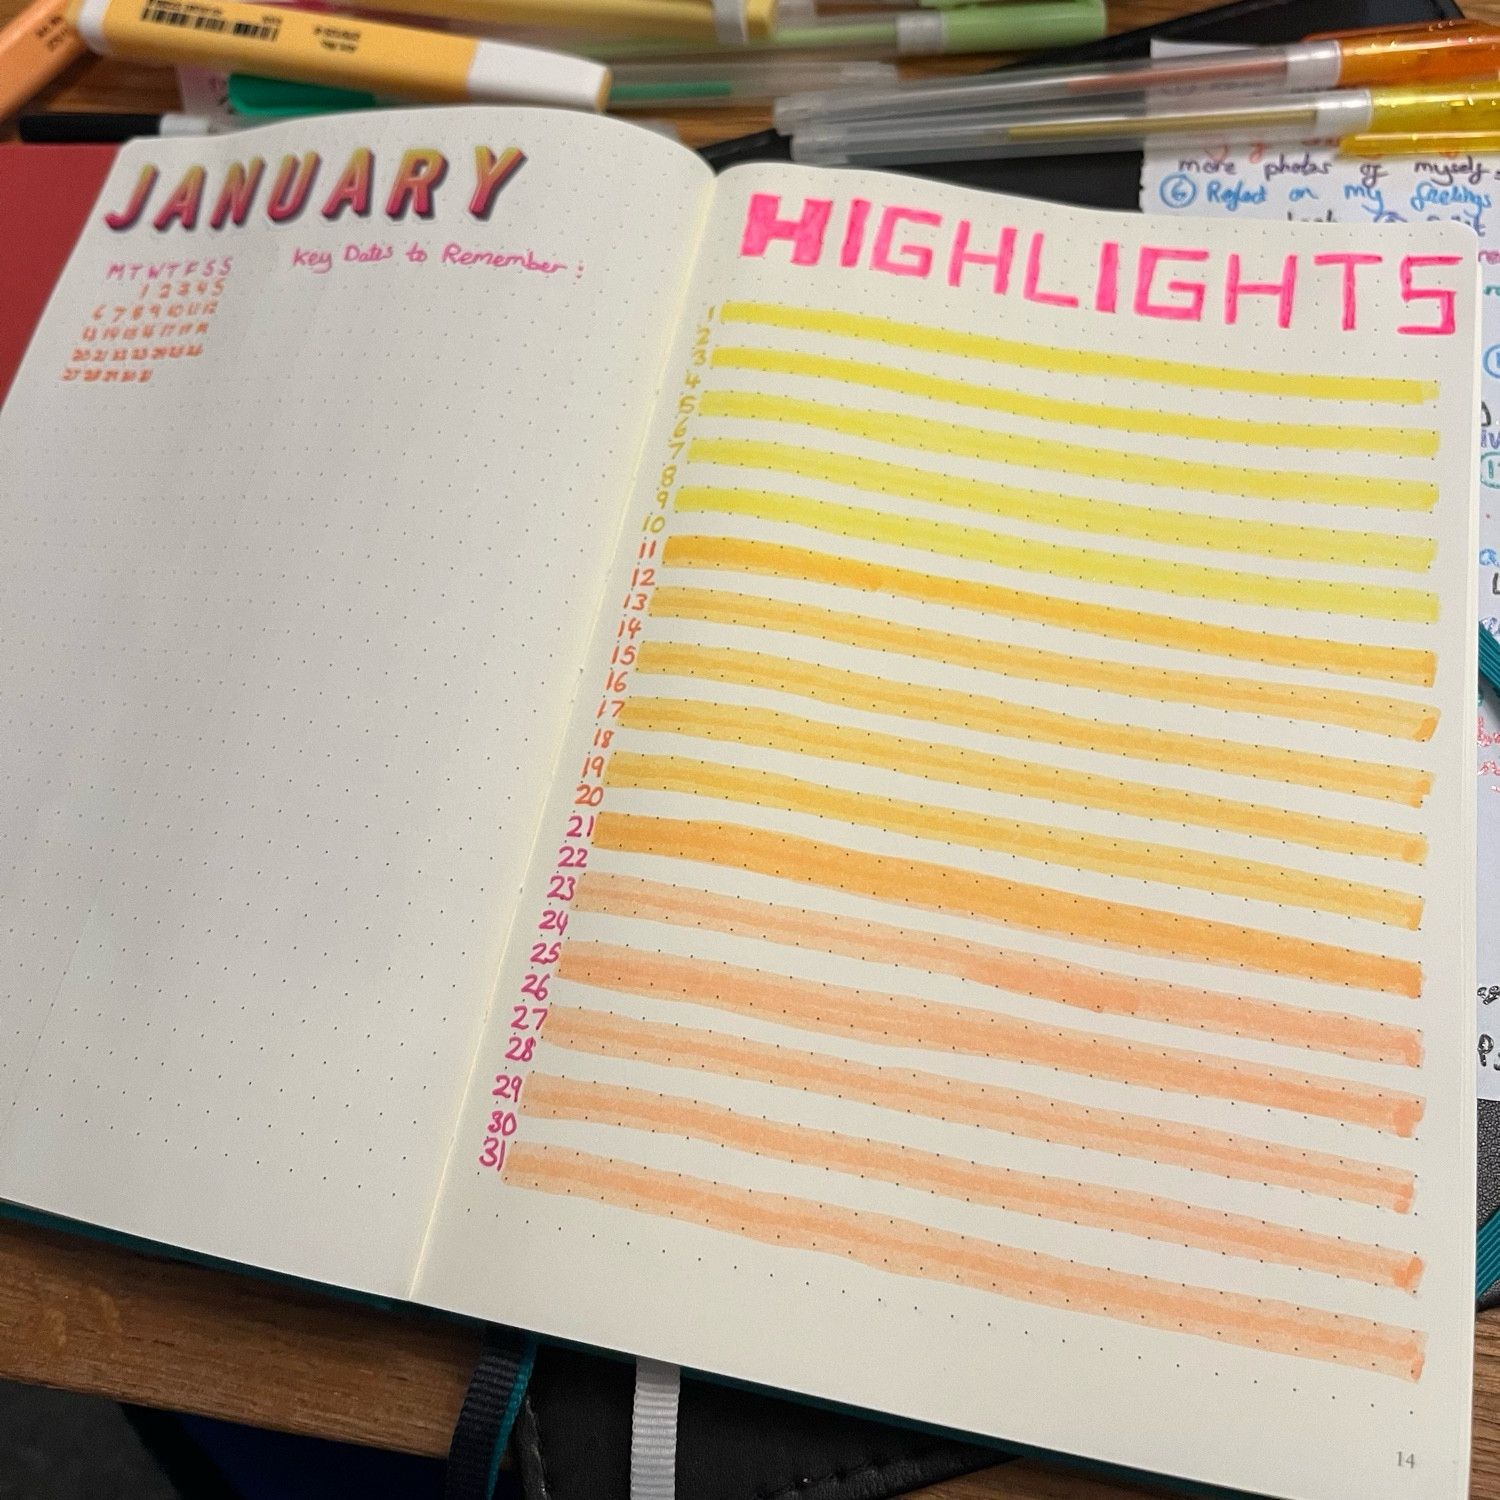 JANUARY
Key Dates to Remember:
M T W T F S S
1 2 3 4 5
6 7 8 9 10 11 12
13 14 15 16 17 18 19
20 21 22 23 24 25 26
27 28 29 30 31
HIGHLIGHTS
1
2
3
4
5
6
7
8
9
10
11
12
13
14
15
16
17
18
19
20
21
22
23
24
25
26
27
28
29
30
31
14
more photos of myself
6 Reflect on my feelings